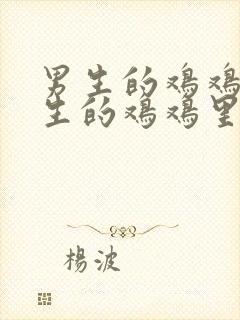 男生的鸡鸡
生的鸡鸡里
楊波